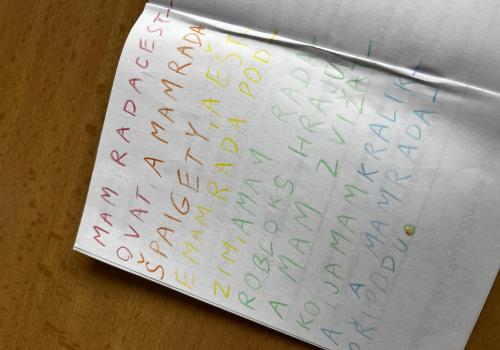 MAM RADACEST-
OVAT, A MAMRADA
ŠPAIGETY,A EŠT-
E MAMRADA POD-
ZIM,AMAM RADA-
ROBLOKS HRAJU-
A MAM ZVIŽAT-
KO,JAMAM KRALIK-
A A MAMRADA-
PŘIPODU.